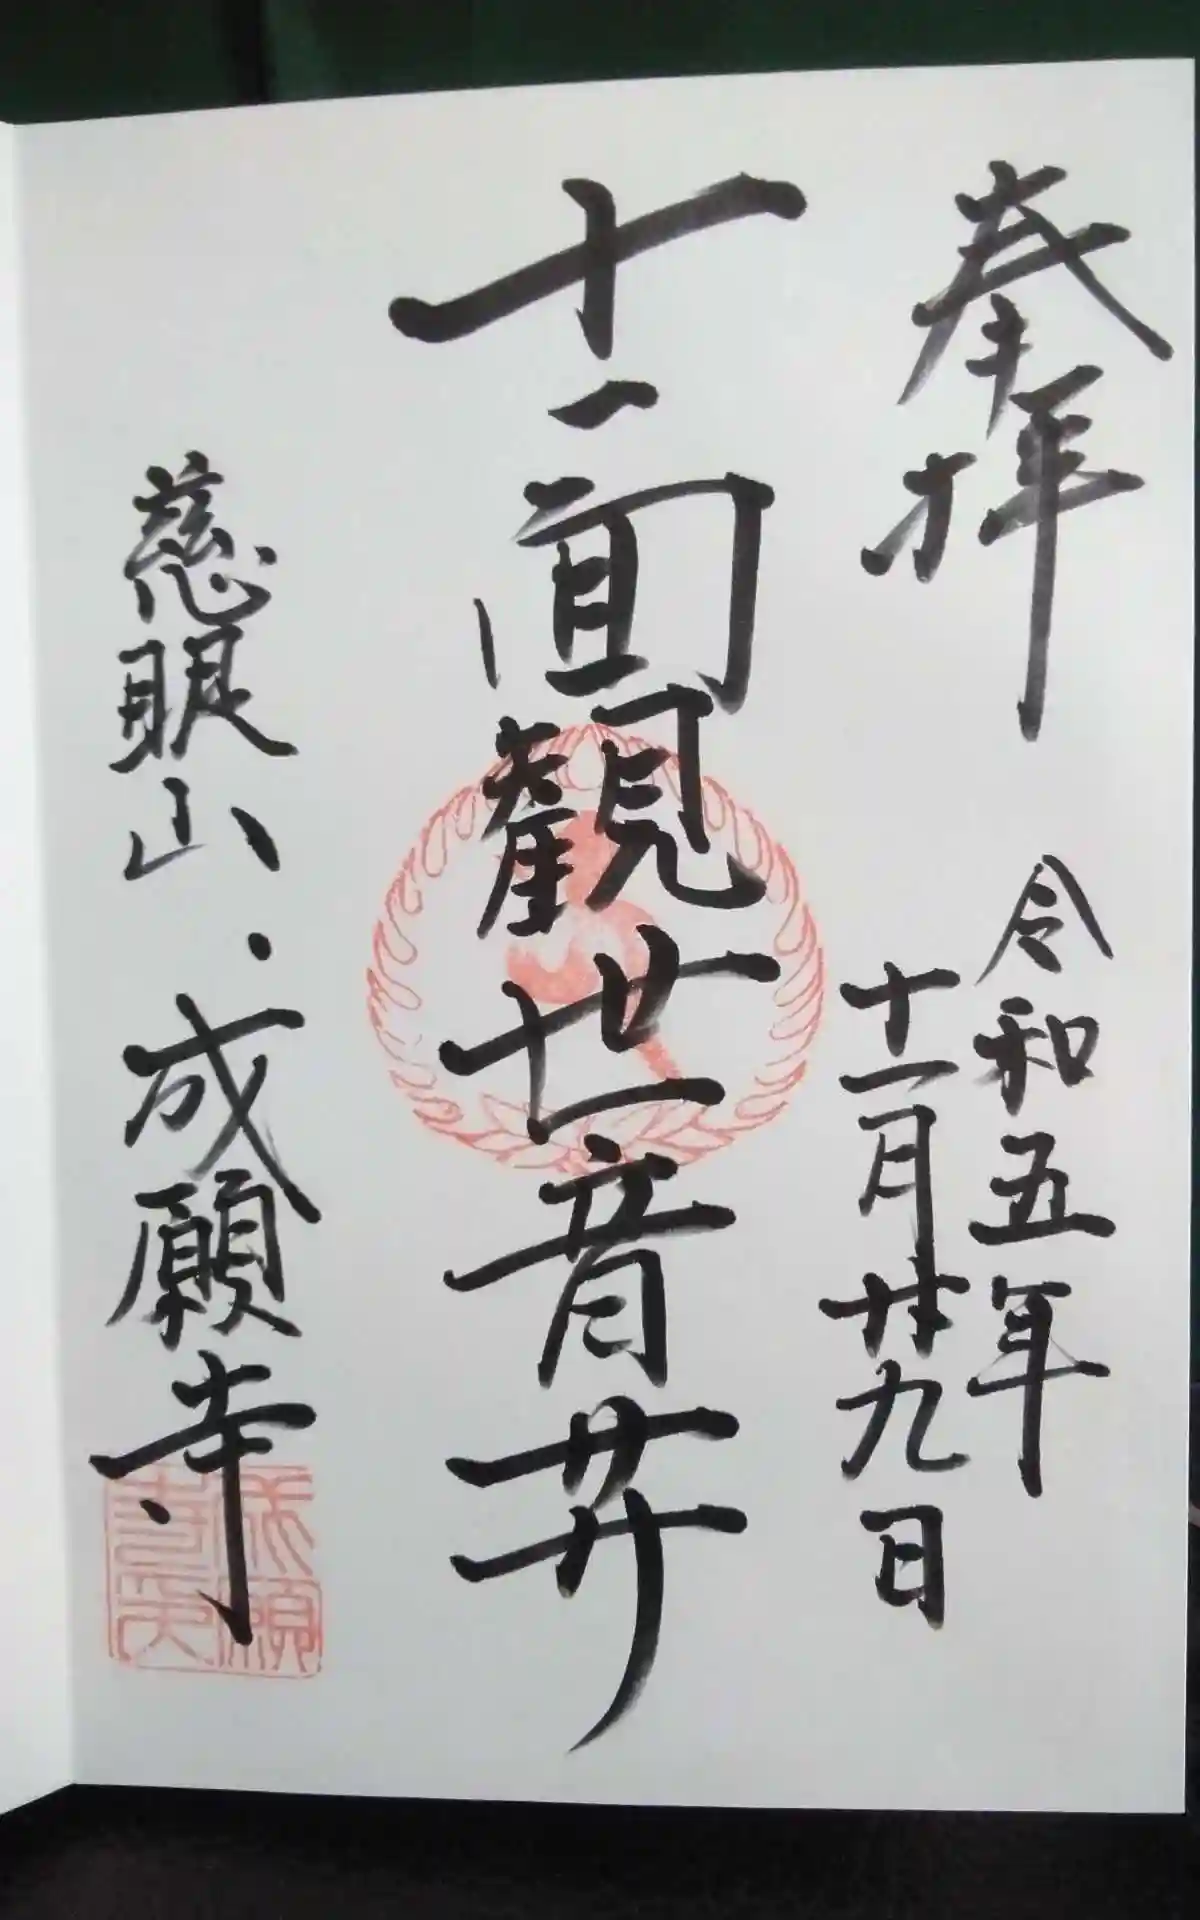 奉拝
令和五年
十一月廿九日
十一面觀世音菩
慈眼山
成願寺
成願
寺印